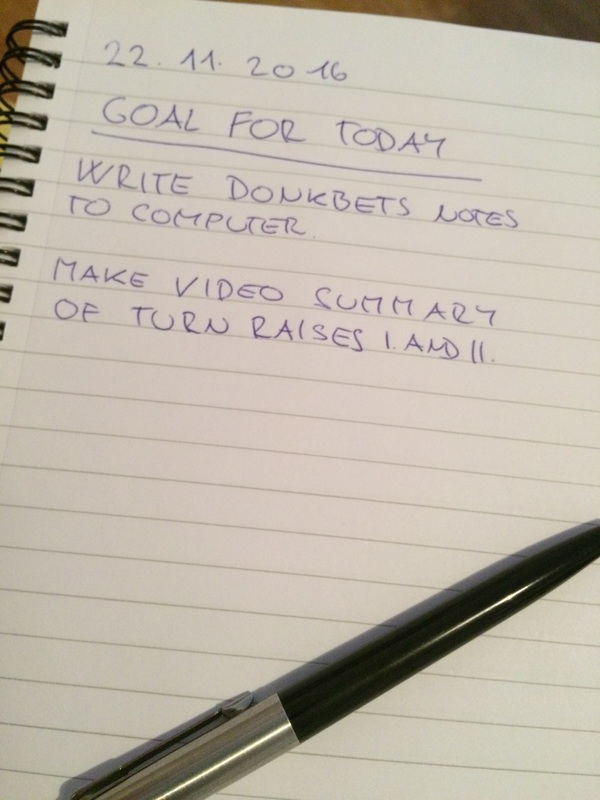 22. 11. 2016
GOAL FOR TODAY
WRITE DONKBETS NOTES
TO COMPUTER.
MAKE VIDEO SUMMARY
OF TURN RAISES I. AND II.